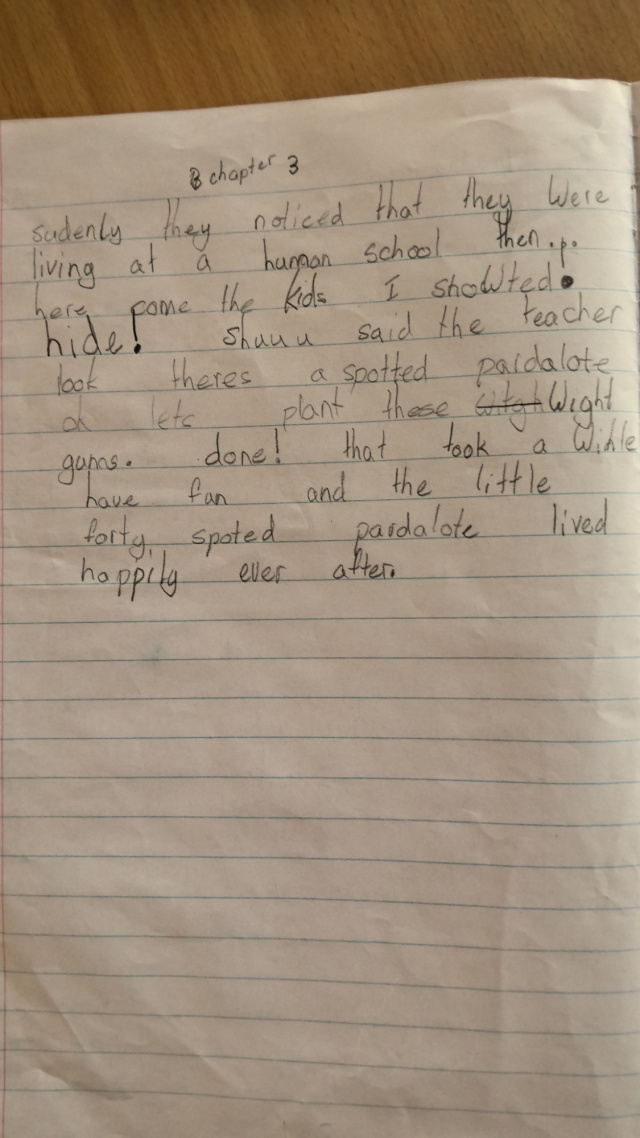 chapter 3
sudenly they noticed that they were
living at a human school then...
here come the kids I showted.
hide! shuuu said the teacher
look theres a spotted pardalote
oh lets plant these Wight
gums. done! that took a Wihle
have fun and the little
forty, spoted pardalote lived
happily ever after.